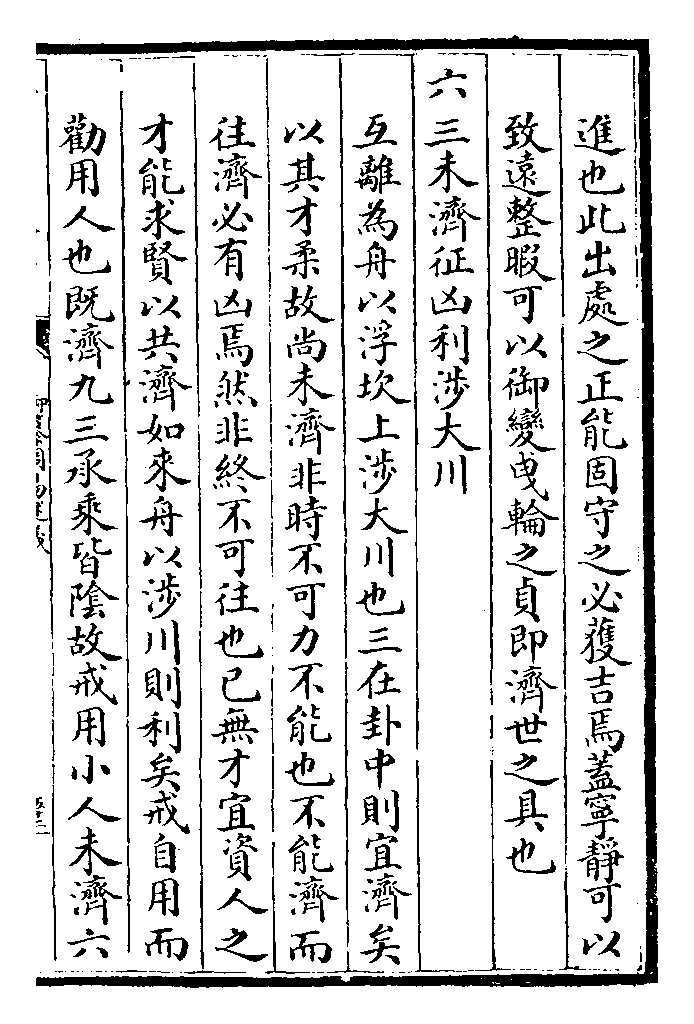 進也此出處之正能固守之必獲吉焉蓋寧靜可以
致遠整暇可以御變曳輪之貞即濟世之具也
六三未濟征凶利涉大川
互離為舟以浮坎上涉大川也三在卦中則宜濟矣
以其才柔故尚未濟非時不可力不能也不能濟而
往濟必有凶焉然非終不可往也已無才宜資人之
才能求賢以共濟如來舟以涉川則利矣戒自用而
勸用人也既濟九三承乘皆陰故戒用小人未濟六